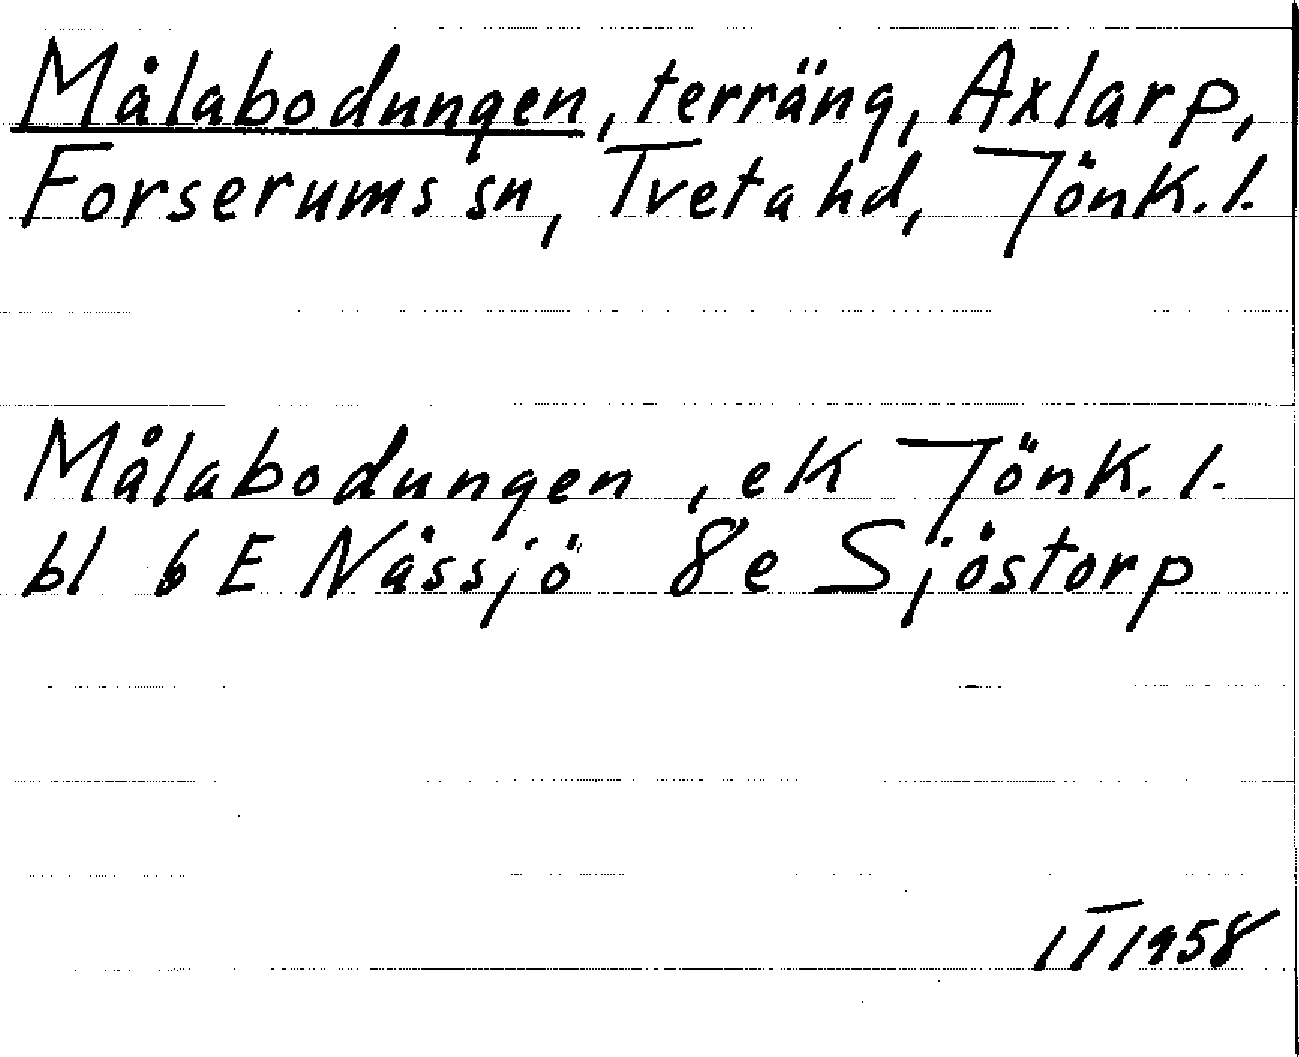 Målabodungen, terräng, Axlarp,
Forserums sn, Tveta hd, Jönk. l.
Målabodungen, ek Jönk. l.
bl 6 E Nässjö 8e Sjöstorp
1 I 1958